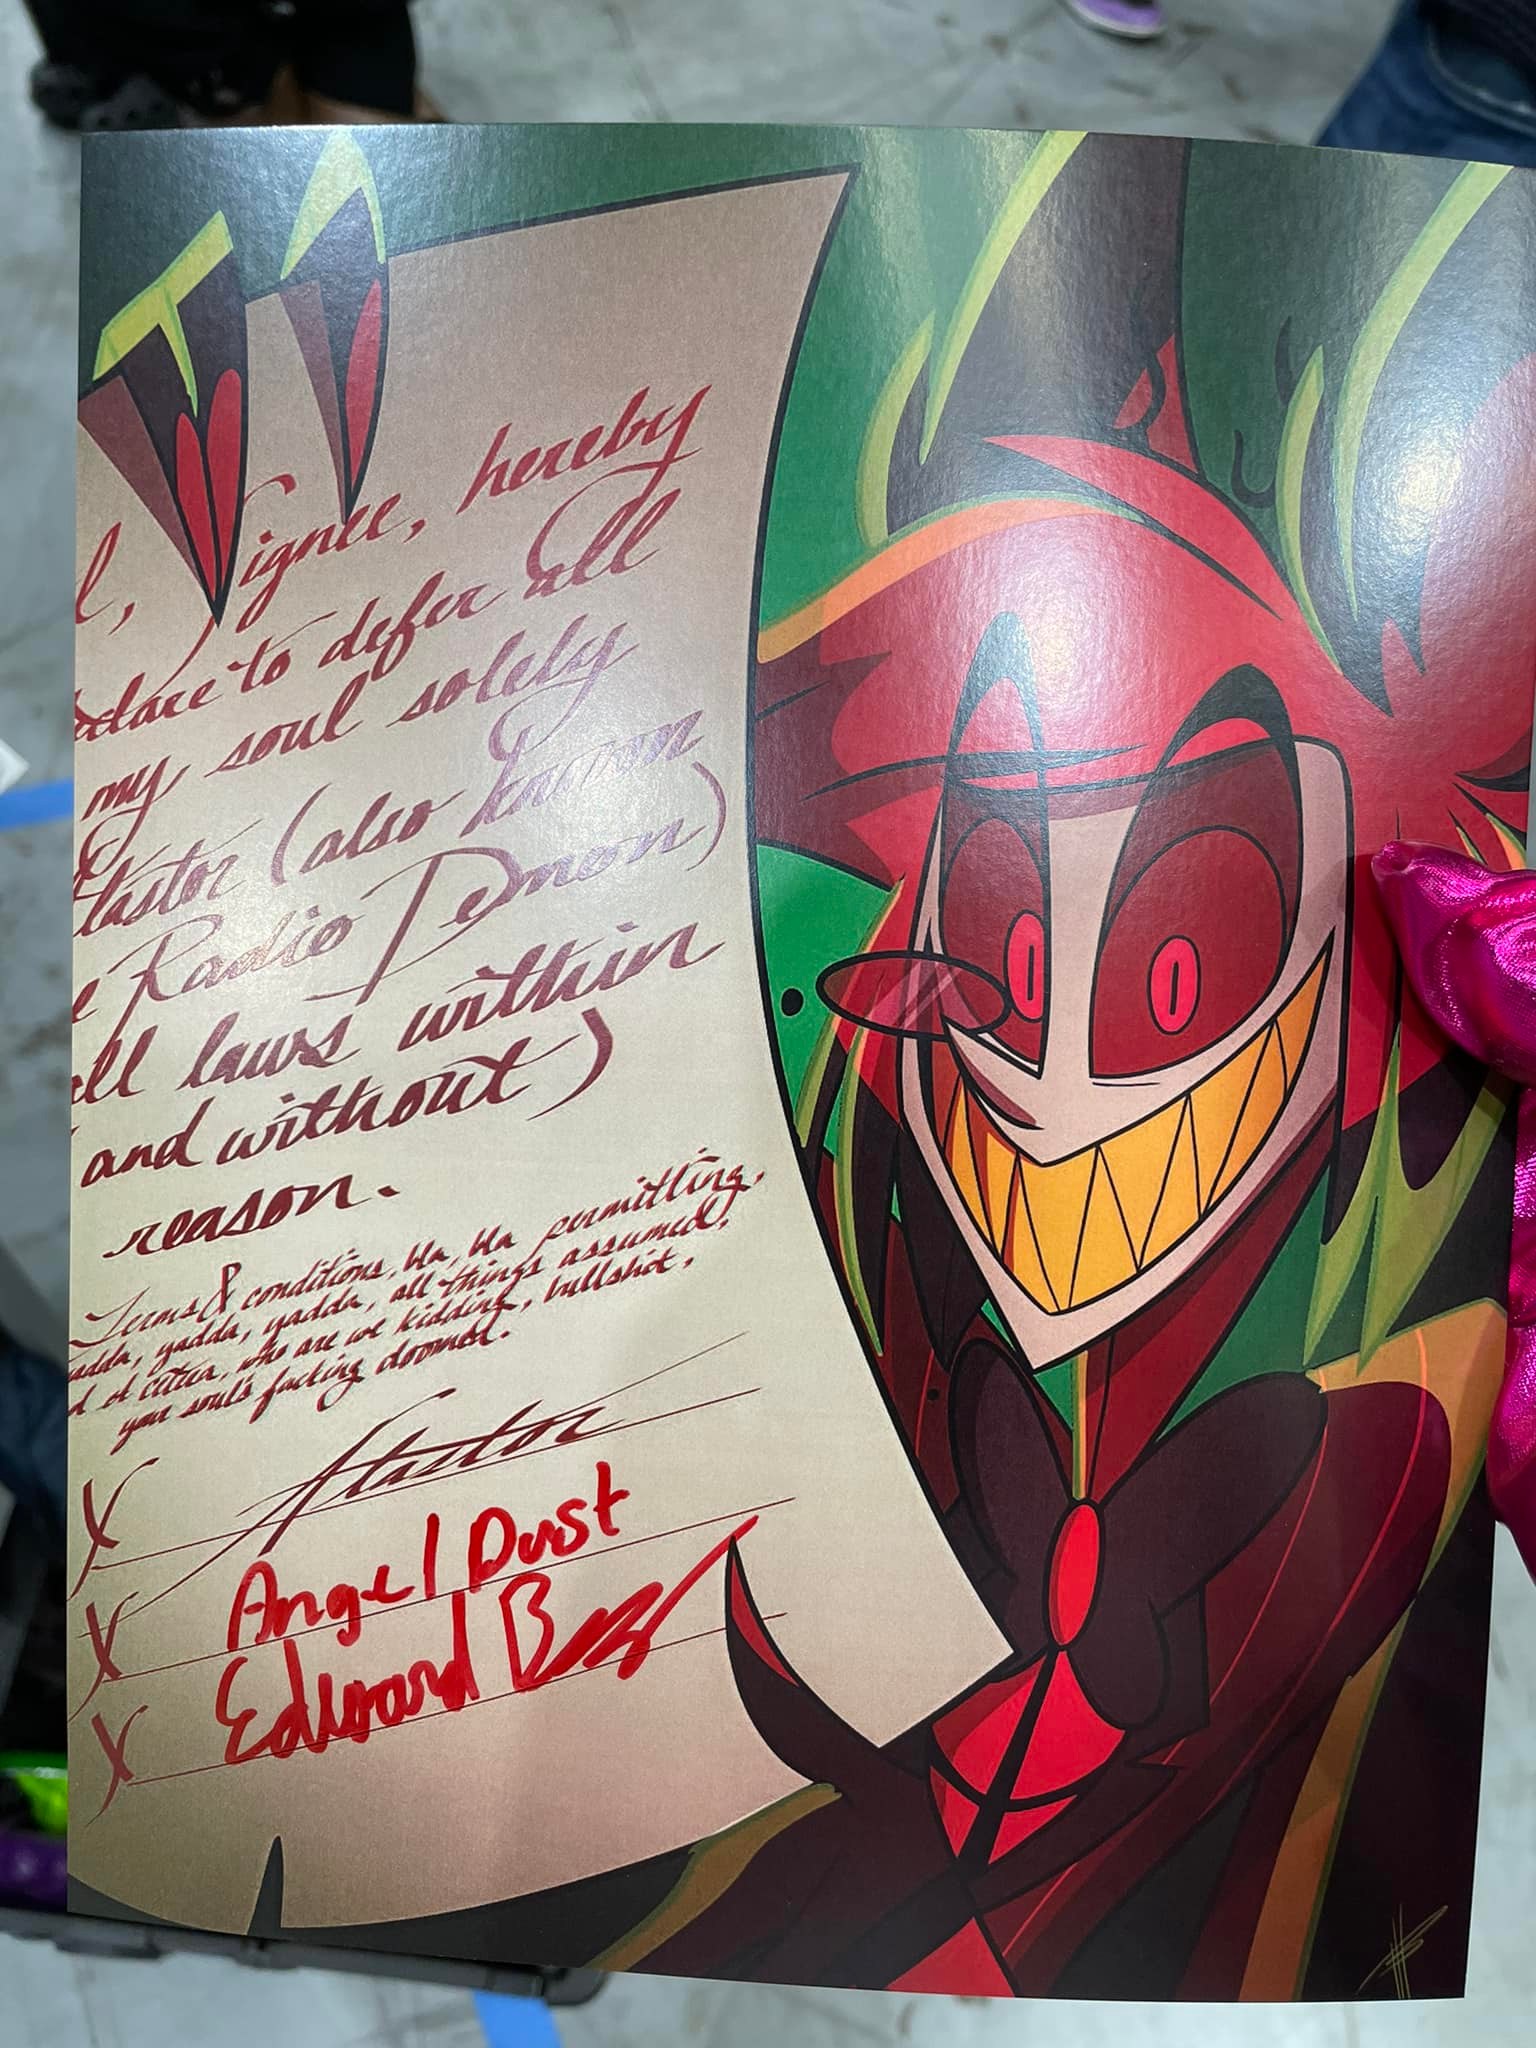 I, Signee, hereby
declare to defer all
my soul solely
Alastor (also known
Radio Demon)
all laws within
and without)
reason.
Terms & conditions, bla, bla permitting,
yadda, yadda, yadda, all things assumed,
et cetera, who are we kidding, bullshit,
your soul's fucking doomed.
X Alastor
X Angel Dust
X Edward